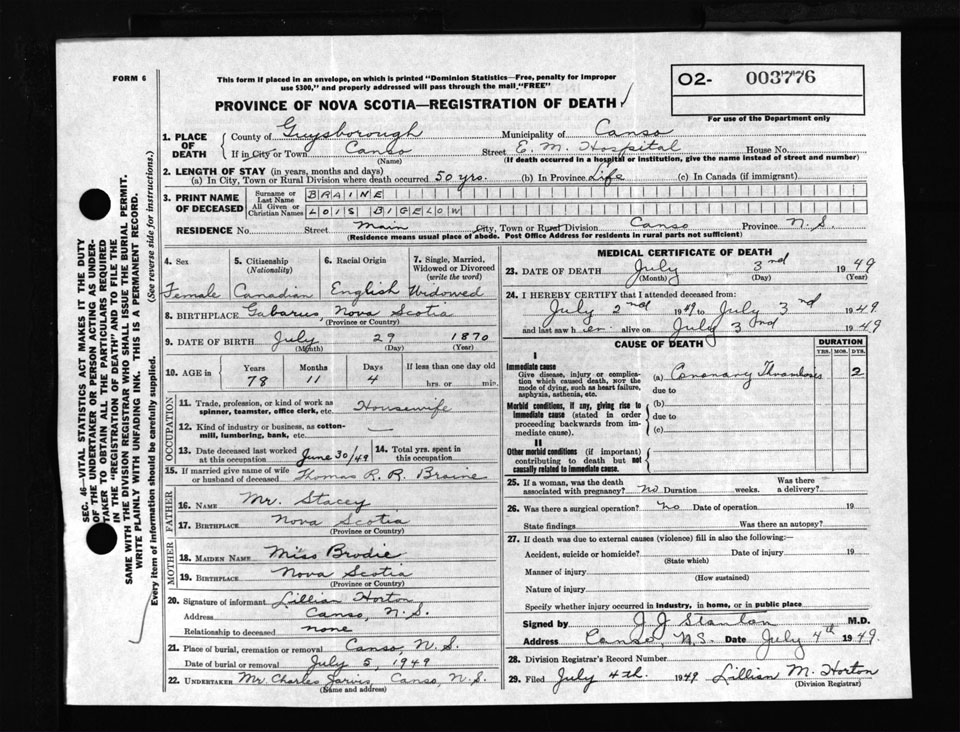 FORM 6
This form if placed in an envelope, on which is printed "Dominion Statistics—Free, penalty for improper
use $300," and properly addressed will pass through the mail "FREE"
O2- 003776
For use of the Department only
PROVINCE OF NOVA SCOTIA—REGISTRATION OF DEATH
1. PLACE OF DEATH
County of Guysborough Municipality of Canso
If in City or Town Canso Street E. M. Hospital House No.
(Name) (If death occurred in a hospital or institution, give the name instead of street and number)
2. LENGTH OF STAY (in years, months and days)
(a) In City, Town or Rural Division where death occurred 50 yrs. (b) In Province Life (c) In Canada (if immigrant)
3. PRINT NAME OF DECEASED
Surname or Last Name BRAINE
All Given or Christian Names LOIS BIGELOW
RESIDENCE No. Street Main City, Town or Rural Division Canso Province N.S.
(Residence means usual place of abode. Post Office Address for residents in rural parts not sufficient)
4. Sex 5. Citizenship (Nationality) 6. Racial Origin 7. Single, Married, Widowed or Divorced (write the word)
Female Canadian English Widowed
8. BIRTHPLACE Gabarus, Nova Scotia
(Province or Country)
9. DATE OF BIRTH July 29 1870
(Month) (Day) (Year)
10. AGE in Years Months Days If less than one day old
78 11 4 hrs. or min.
OCCUPATION
11. Trade, profession, or kind of work as
spinner, teamster, office clerk, etc. Housewife
12. Kind of industry or business, as cotton-
mill, lumbering, bank, etc. —
13. Date deceased last worked at this occupation June 30/49 14. Total yrs. spent in this occupation
15. If married give name of wife
or husband of deceased Thomas R. R. Braine
FATHER
16. NAME Mr. Stacey
17. BIRTHPLACE Nova Scotia
(Province or Country)
MOTHER
18. MAIDEN NAME Miss Brodie
19. BIRTHPLACE Nova Scotia
(Province or Country)
20. Signature of informant Lillian Horton
Address Canso, N.S.
Relationship to deceased none
21. Place of burial, cremation or removal Canso, N.S.
Date of burial or removal July 5, 1949
22. UNDERTAKER Mr. Charles Jarvis, Canso, N.S.
(Name and address)
MEDICAL CERTIFICATE OF DEATH
23. DATE OF DEATH July 3rd 1949
(Month) (Day) (Year)
24. I HEREBY CERTIFY that I attended deceased from:
July 2nd 1949 to July 3rd 1949
and last saw her alive on July 3rd 1949
CAUSE OF DEATH DURATION
YRS. MOS. DYS.
I
Immediate cause
Give disease, injury or complica-
tion which caused death, NOT the
mode of dying, such as heart failure,
asphyxia, asthenia, etc.
(a) Coronary Thrombosis 2
due to
Morbid conditions, if any, giving rise to
immediate cause (stated in order
proceeding backwards from im-
mediate cause).
(b)
due to
(c)
II
Other morbid conditions (if important)
contributing to death but not
causally related to immediate cause.
25. If a woman, was the death
associated with pregnancy? no Duration weeks. Was there a delivery?
26. Was there a surgical operation? no Date of operation 19
State findings Was there an autopsy?
27. If death was due to external causes (violence) fill in also the following:—
Accident, suicide or homicide? Date of injury 19
(State which)
Manner of injury
(How sustained)
Nature of injury
Specify whether injury occurred in industry, in home, or in public place
Signed by J J Stanton M.D.
Address Canso, N.S. Date July 4th 1949
28. Division Registrar's Record Number
29. Filed July 4th 1949 Lillian M. Horton
(Division Registrar)
SEC. 46—VITAL STATISTICS ACT MAKES IT THE DUTY
OF THE UNDERTAKER OR PERSON ACTING AS UNDER-
TAKER TO OBTAIN ALL THE PARTICULARS REQUIRED
IN THE "REGISTRATION OF DEATH" AND TO FILE THE
SAME WITH THE DIVISION REGISTRAR WHO SHALL ISSUE THE BURIAL PERMIT.
WRITE PLAINLY WITH UNFADING INK. THIS IS A PERMANENT RECORD.
Every item of information should be carefully supplied. (See reverse side for instructions.)